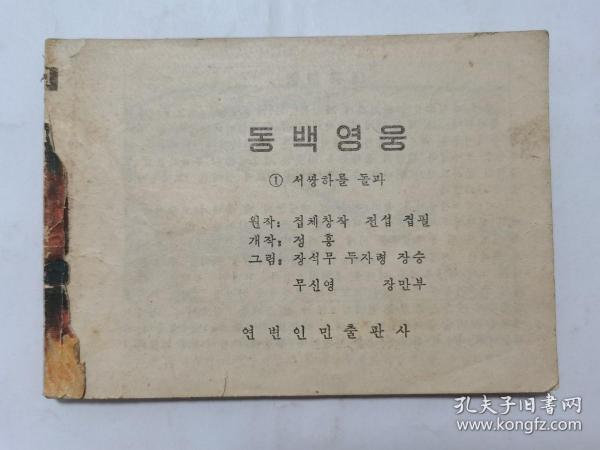 동백영웅
① 서쌍하를 돌파
원작: 집체창작 전섭 집필
개작: 정흥
그림: 장석무 두자령 장승
무신영 장만부
연변인민출판사
孔夫子旧书网
www.kongfz.com